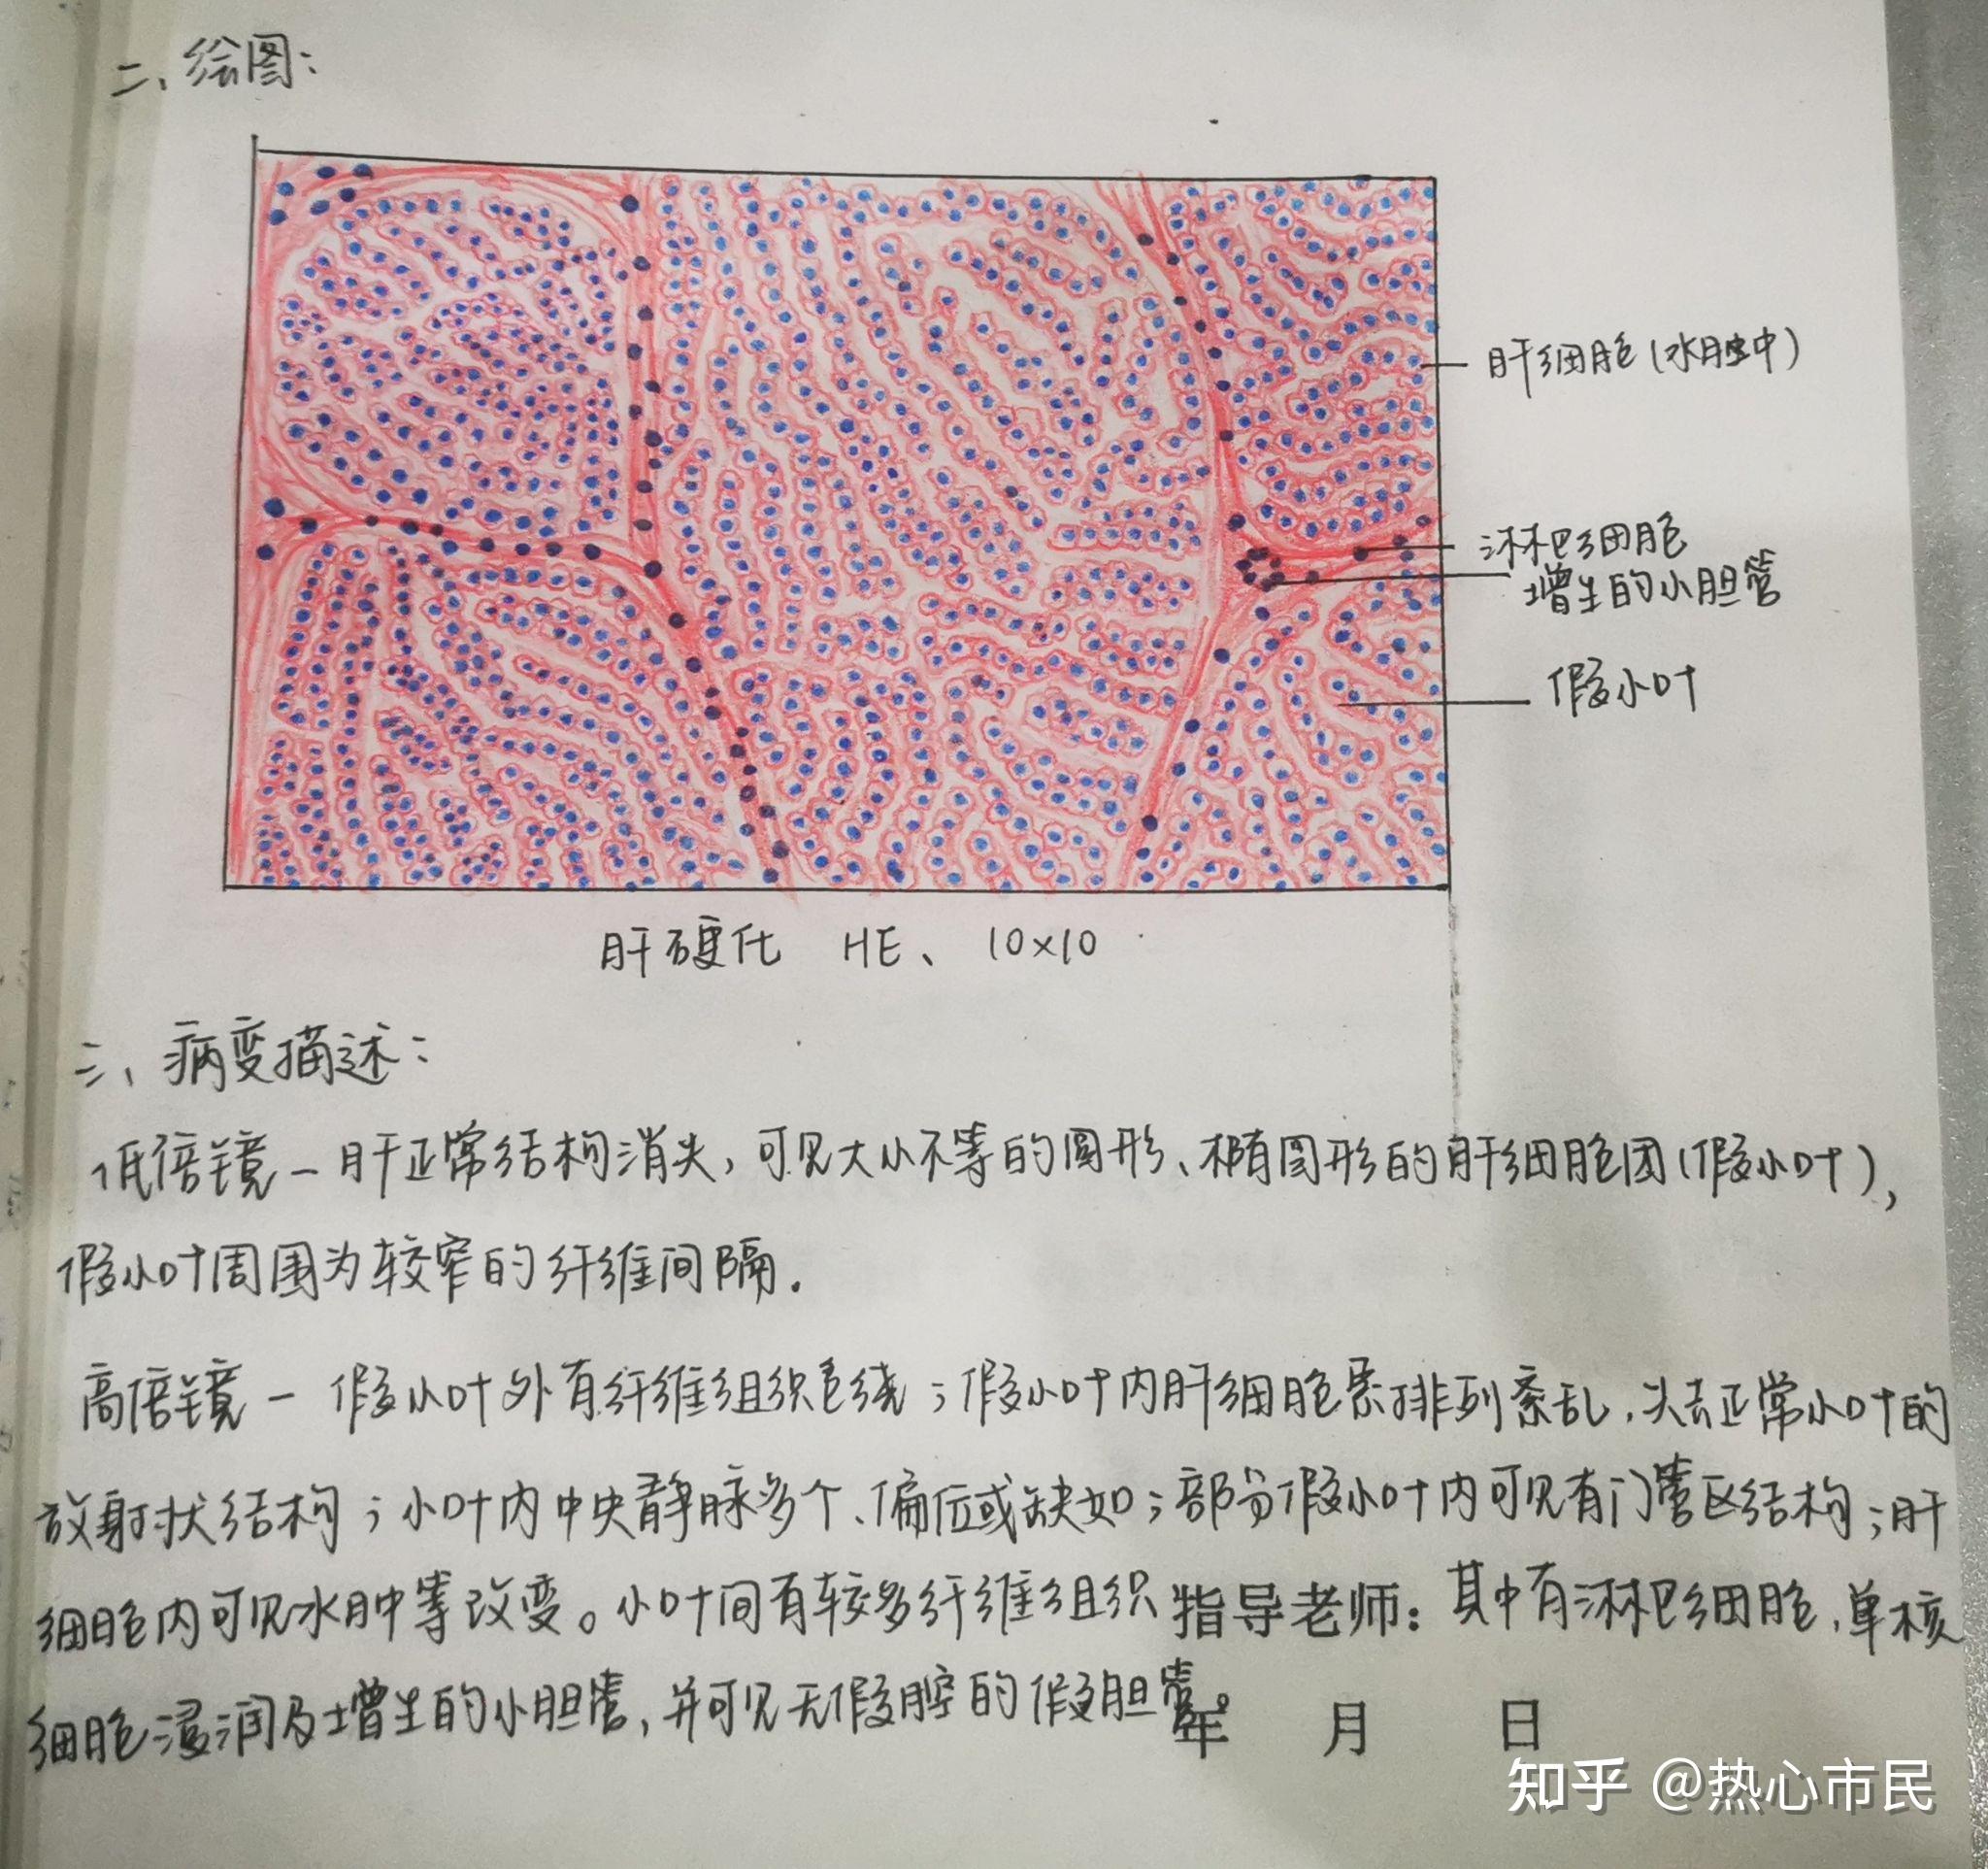 二、绘图:
肝细胞(水肿中)
淋巴细胞
增生的小胆管
假小叶
肝硬化 HE、 10×10
三、病变描述:
低倍镜—肝正常结构消失,可见大小不等的圆形、椭圆形的肝细胞团(假小叶),
假小叶周围为较窄的纤维间隔.
高倍镜— 假小叶外有纤维组织包绕;假小叶内肝细胞索排列紊乱,失去正常小叶的
放射状结构;小叶内中央静脉多个、偏位或缺如;部分假小叶内可见有门管区结构;肝
细胞内可见水肿等改变。小叶间有较多纤维组织 指导老师: 其中有淋巴细胞,单核
细胞浸润及增生的小胆管,并可见无假腔的假胆管。
年 月 日
知乎 @热心市民